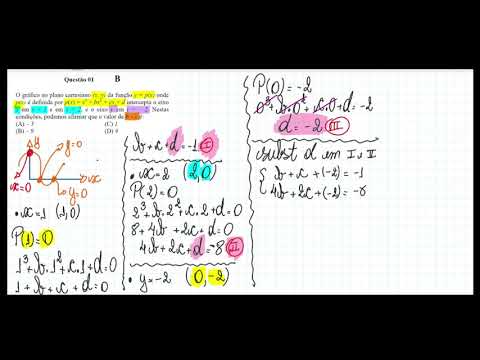 Questão 01 B
O gráfico no plano cartesiano (x, y) da função y = p(x) onde
p(x) é definida por p(x) = x³ + bx² + cx + d intercepta o eixo
x em x = 1 e em x = 2, e o eixo y em y = -2. Nestas
condições, podemos afirmar que o valor de
(A) - 3 (C) 1
(B) - 9 (D) 9
y
y=0
x
x=0
y=0
x=0
• x=1 (1,0)
P(1)=0
1³+b.1²+c.1+d=0
1+b+c+d=0
b+c+d=-1 I
• x=2 (2,0)
P(2)=0
2³+b.2²+c.2+d=0
8+4b+2c+d=0
4b+2c+d=-8 II
• y=-2 (0,-2)
P(0)=-2
0³+b.0²+c.0+d=-2
d=-2 III
subst d em I e II
b+c+(-2)=-1
4b+2c+(-2)=-8